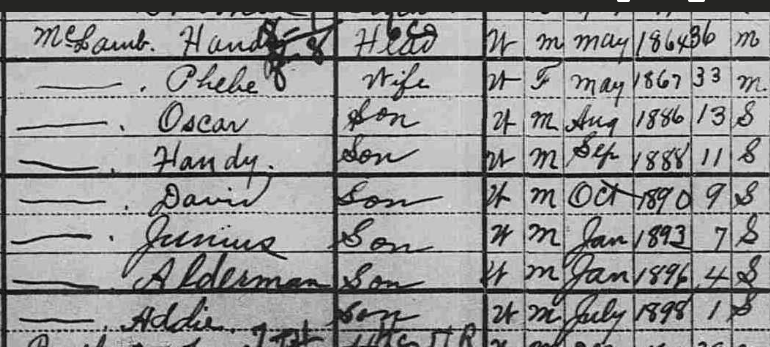 McLamb. Handy Head W m may 1864 36 m
—. Phebe Wife W F may 1867 33 m
—. Oscar Son W m Aug 1886 13 S
—. Handy. Son W m Sep 1888 11 S
—. David Son W m Oct 1890 9 S
—. Junius Son W m Jan 1893 7 S
—. Alderman Son W m Jan 1896 4 S
—. Addie. Son W m July 1898 1 S